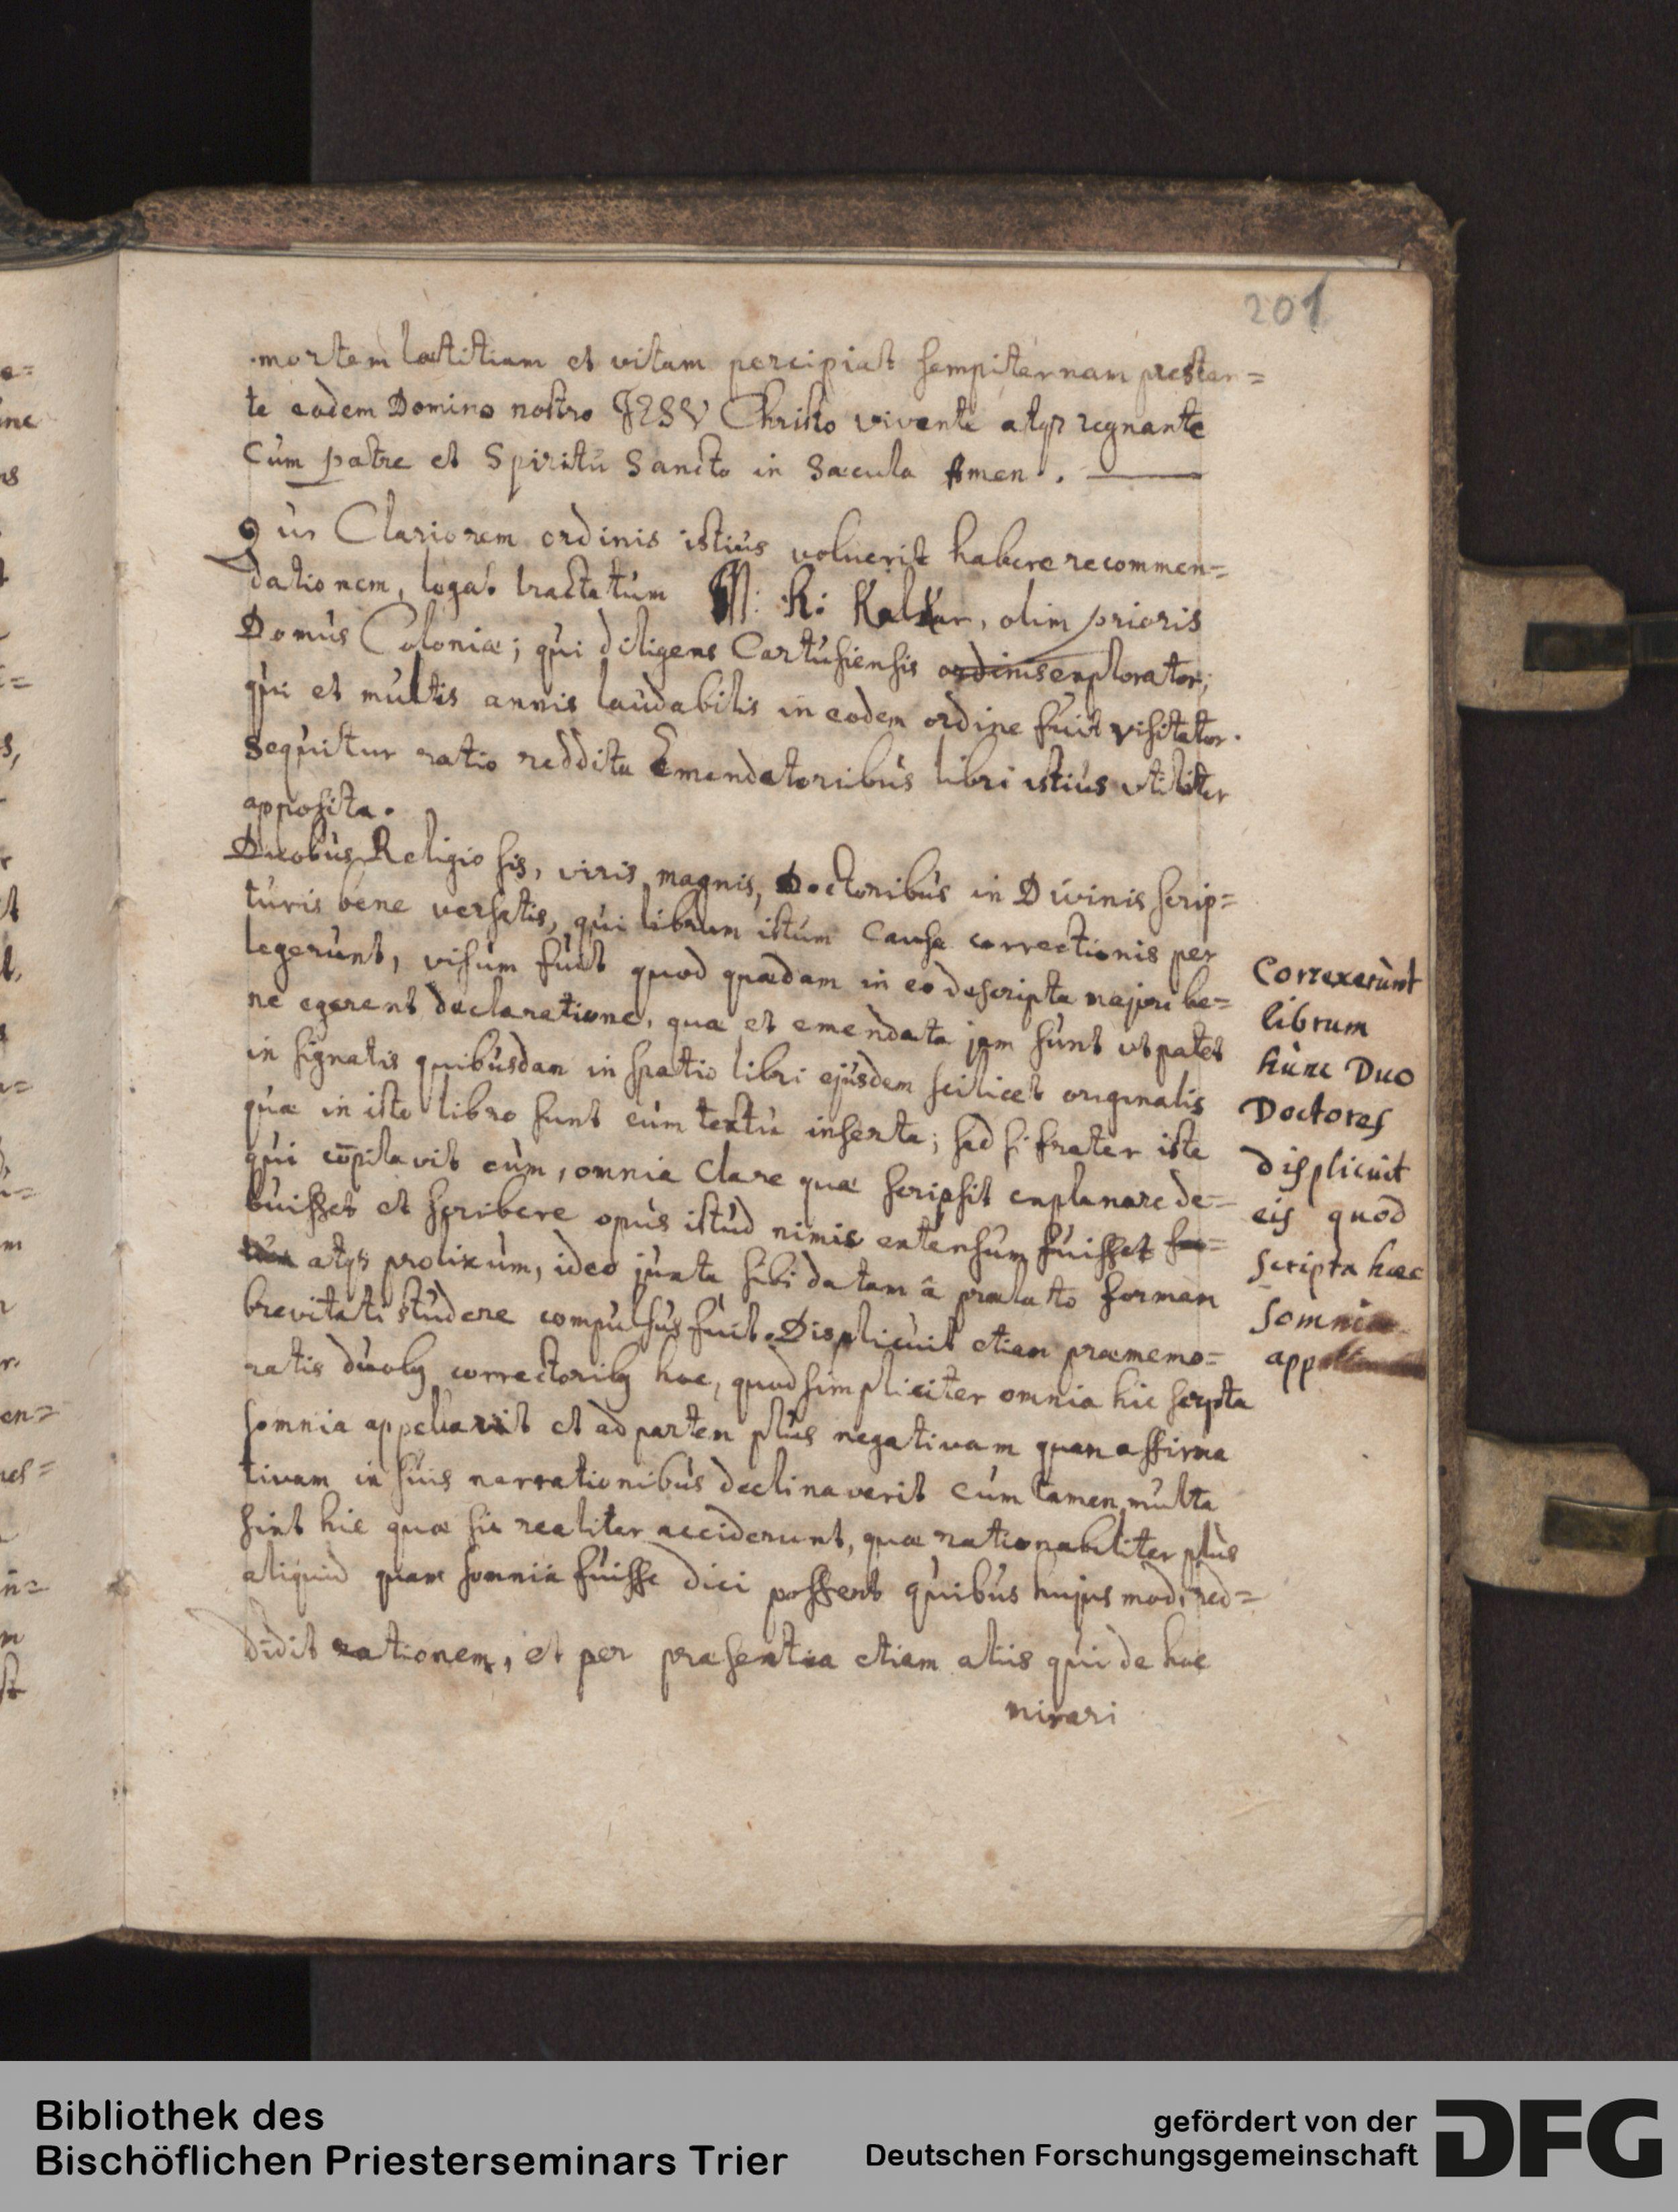 201
mortem lætitiam et vitam percipiat sempiternam præstan=
te eodem Domino nostro JESV Christo vivente atq3 regnante
Cum patre et Spiritu Sancto in Sæcula Amen.
Qui Clariorem ordinis istius voluerit habere recommen=
dationem, legat tractatum M: K: Kalkar, olim prioris
Domus Coloniæ; qui diligens Cartusiensis ordinis explorator;
qui et multis annis laudabilis in eodem ordine fuit visitator.
Sequitur ratio reddita Emendatoribus libri istius utiliter
apposita.
Duobus Religiosis, viris magnis, Doctoribus in Divinis scrip=
turis bene versatis, qui librum istum causa correctionis per
legerunt, visum fuit quod quædam in eo descripta majori be=
ne egerent declaratione, quæ et emendata jam sunt ut patet
in signatis quibusdam in spatio libri ejusdem scilicet originalis
quæ in isto libro sunt cum textu inserta; sed si frater iste
qui cōpilavit eum, omnia clare quæ scripsit explanare de=
buisset et scribere opus istud nimis extensum fuisset
atq3 prolixum, ideo juxta sibi datam â prælato formam
brevitati studere compulsus fuit. Displicuit etiam præmemo=
ratis duob9 correctorib9 hoc, quod simpliciter omnia hic scripta
somnia appellavit et ad partem plus negativam quam affirma
tivam in suis narrationibus declinaverit cum tamen multa
sint hic quæ sic realiter acciderunt, quæ rationabiliter plus
aliquid quam somnia fuisse dici possent quibus hujusmodi red=
didit rationem, et per præsentia etiam aliis qui de hoc
mirari
Correxerunt
librum
hunc Duo
Doctores
displicuit
eis quod
scripta hæc
somnia
Bibliothek des
Bischöflichen Priesterseminars Trier
gefördert von der
Deutschen Forschungsgemeinschaft
DFG